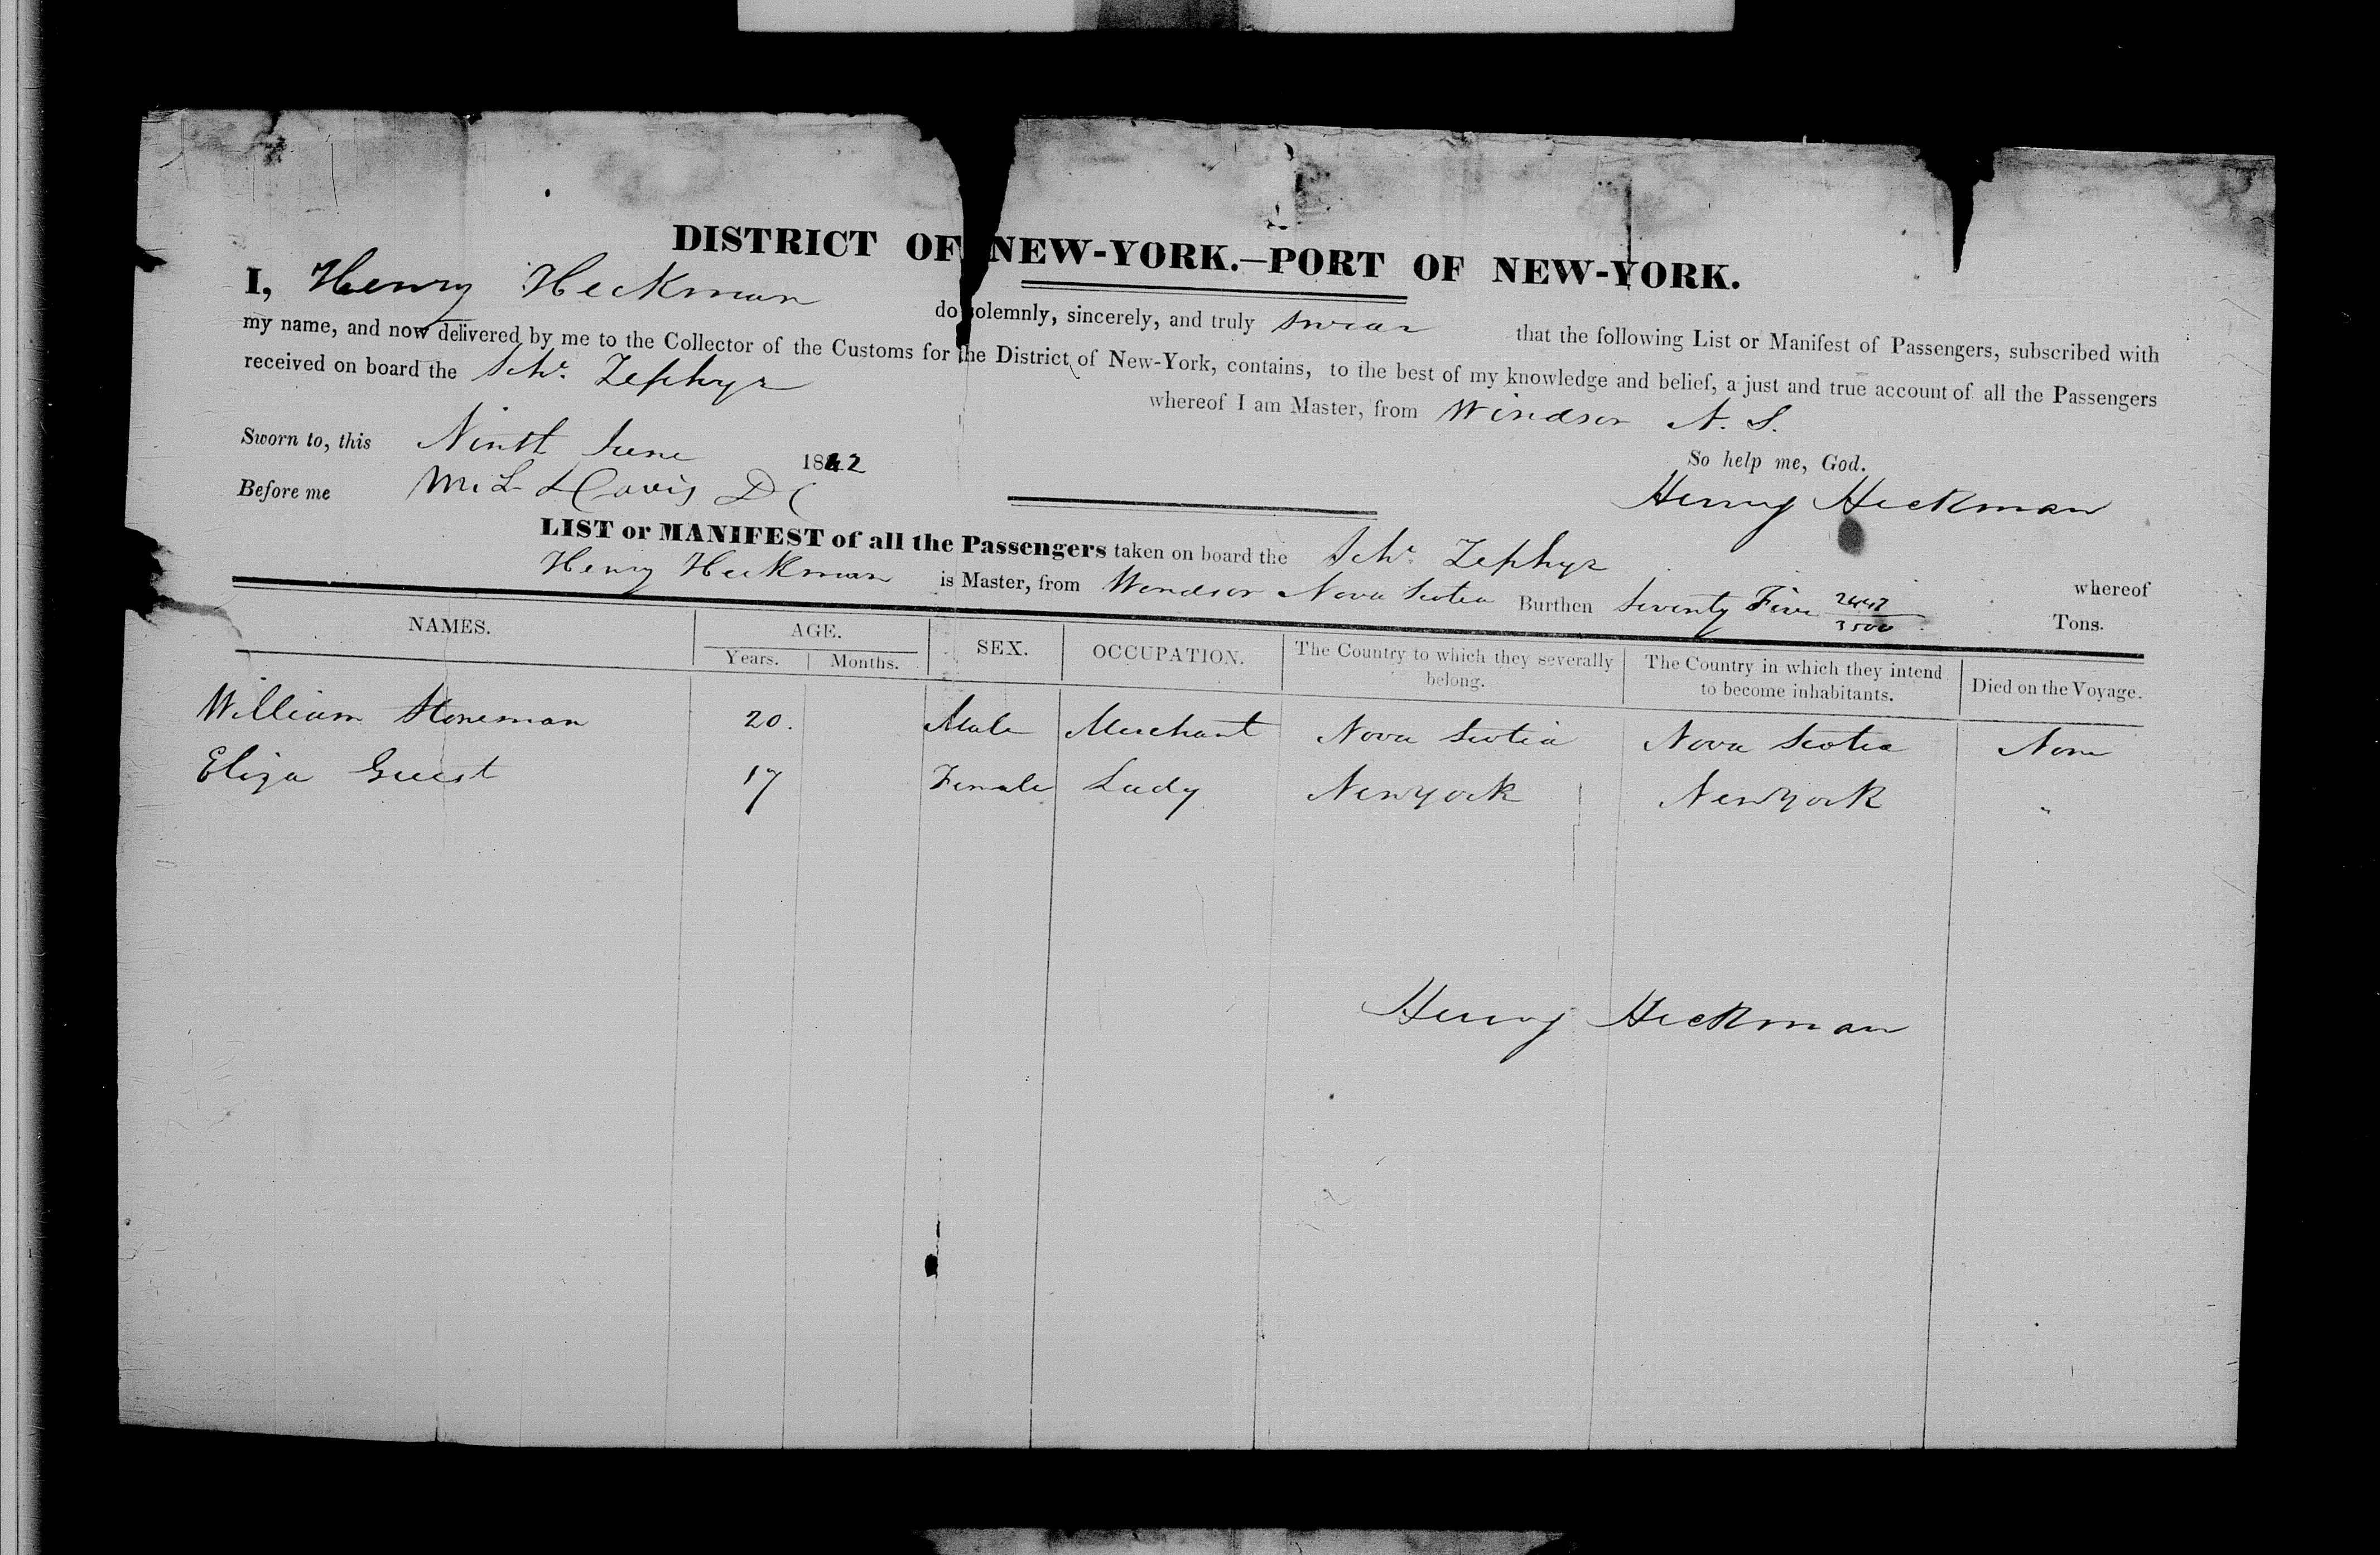 DISTRICT OF NEW-YORK.—PORT OF NEW-YORK.
I, Henry Heckman do solemnly, sincerely, and truly swear that the following List or Manifest of Passengers, subscribed with
my name, and now delivered by me to the Collector of the Customs for the District of New-York, contains, to the best of my knowledge and belief, a just and true account of all the Passengers
received on board the Schr. Zephyr whereof I am Master, from Windsor N. S.
Sworn to, this Ninth June 1842 So help me, God.
Before me M. L. Davis D C Henry Heckman
LIST or MANIFEST of all the Passengers taken on board the Schr. Zephyr whereof
Henry Heckman is Master, from Windsor Nova Scotia Burthen Seventy Five /3500 Tons.
NAMES. AGE. SEX. OCCUPATION. The Country to which they severally belong. The Country in which they intend to become inhabitants. Died on the Voyage.
Years. Months.
William Stoneman 20. Male Merchant Nova Scotia Nova Scotia None
Eliza Guest 17 Female Lady Newyork Newyork "
Henry Heckman